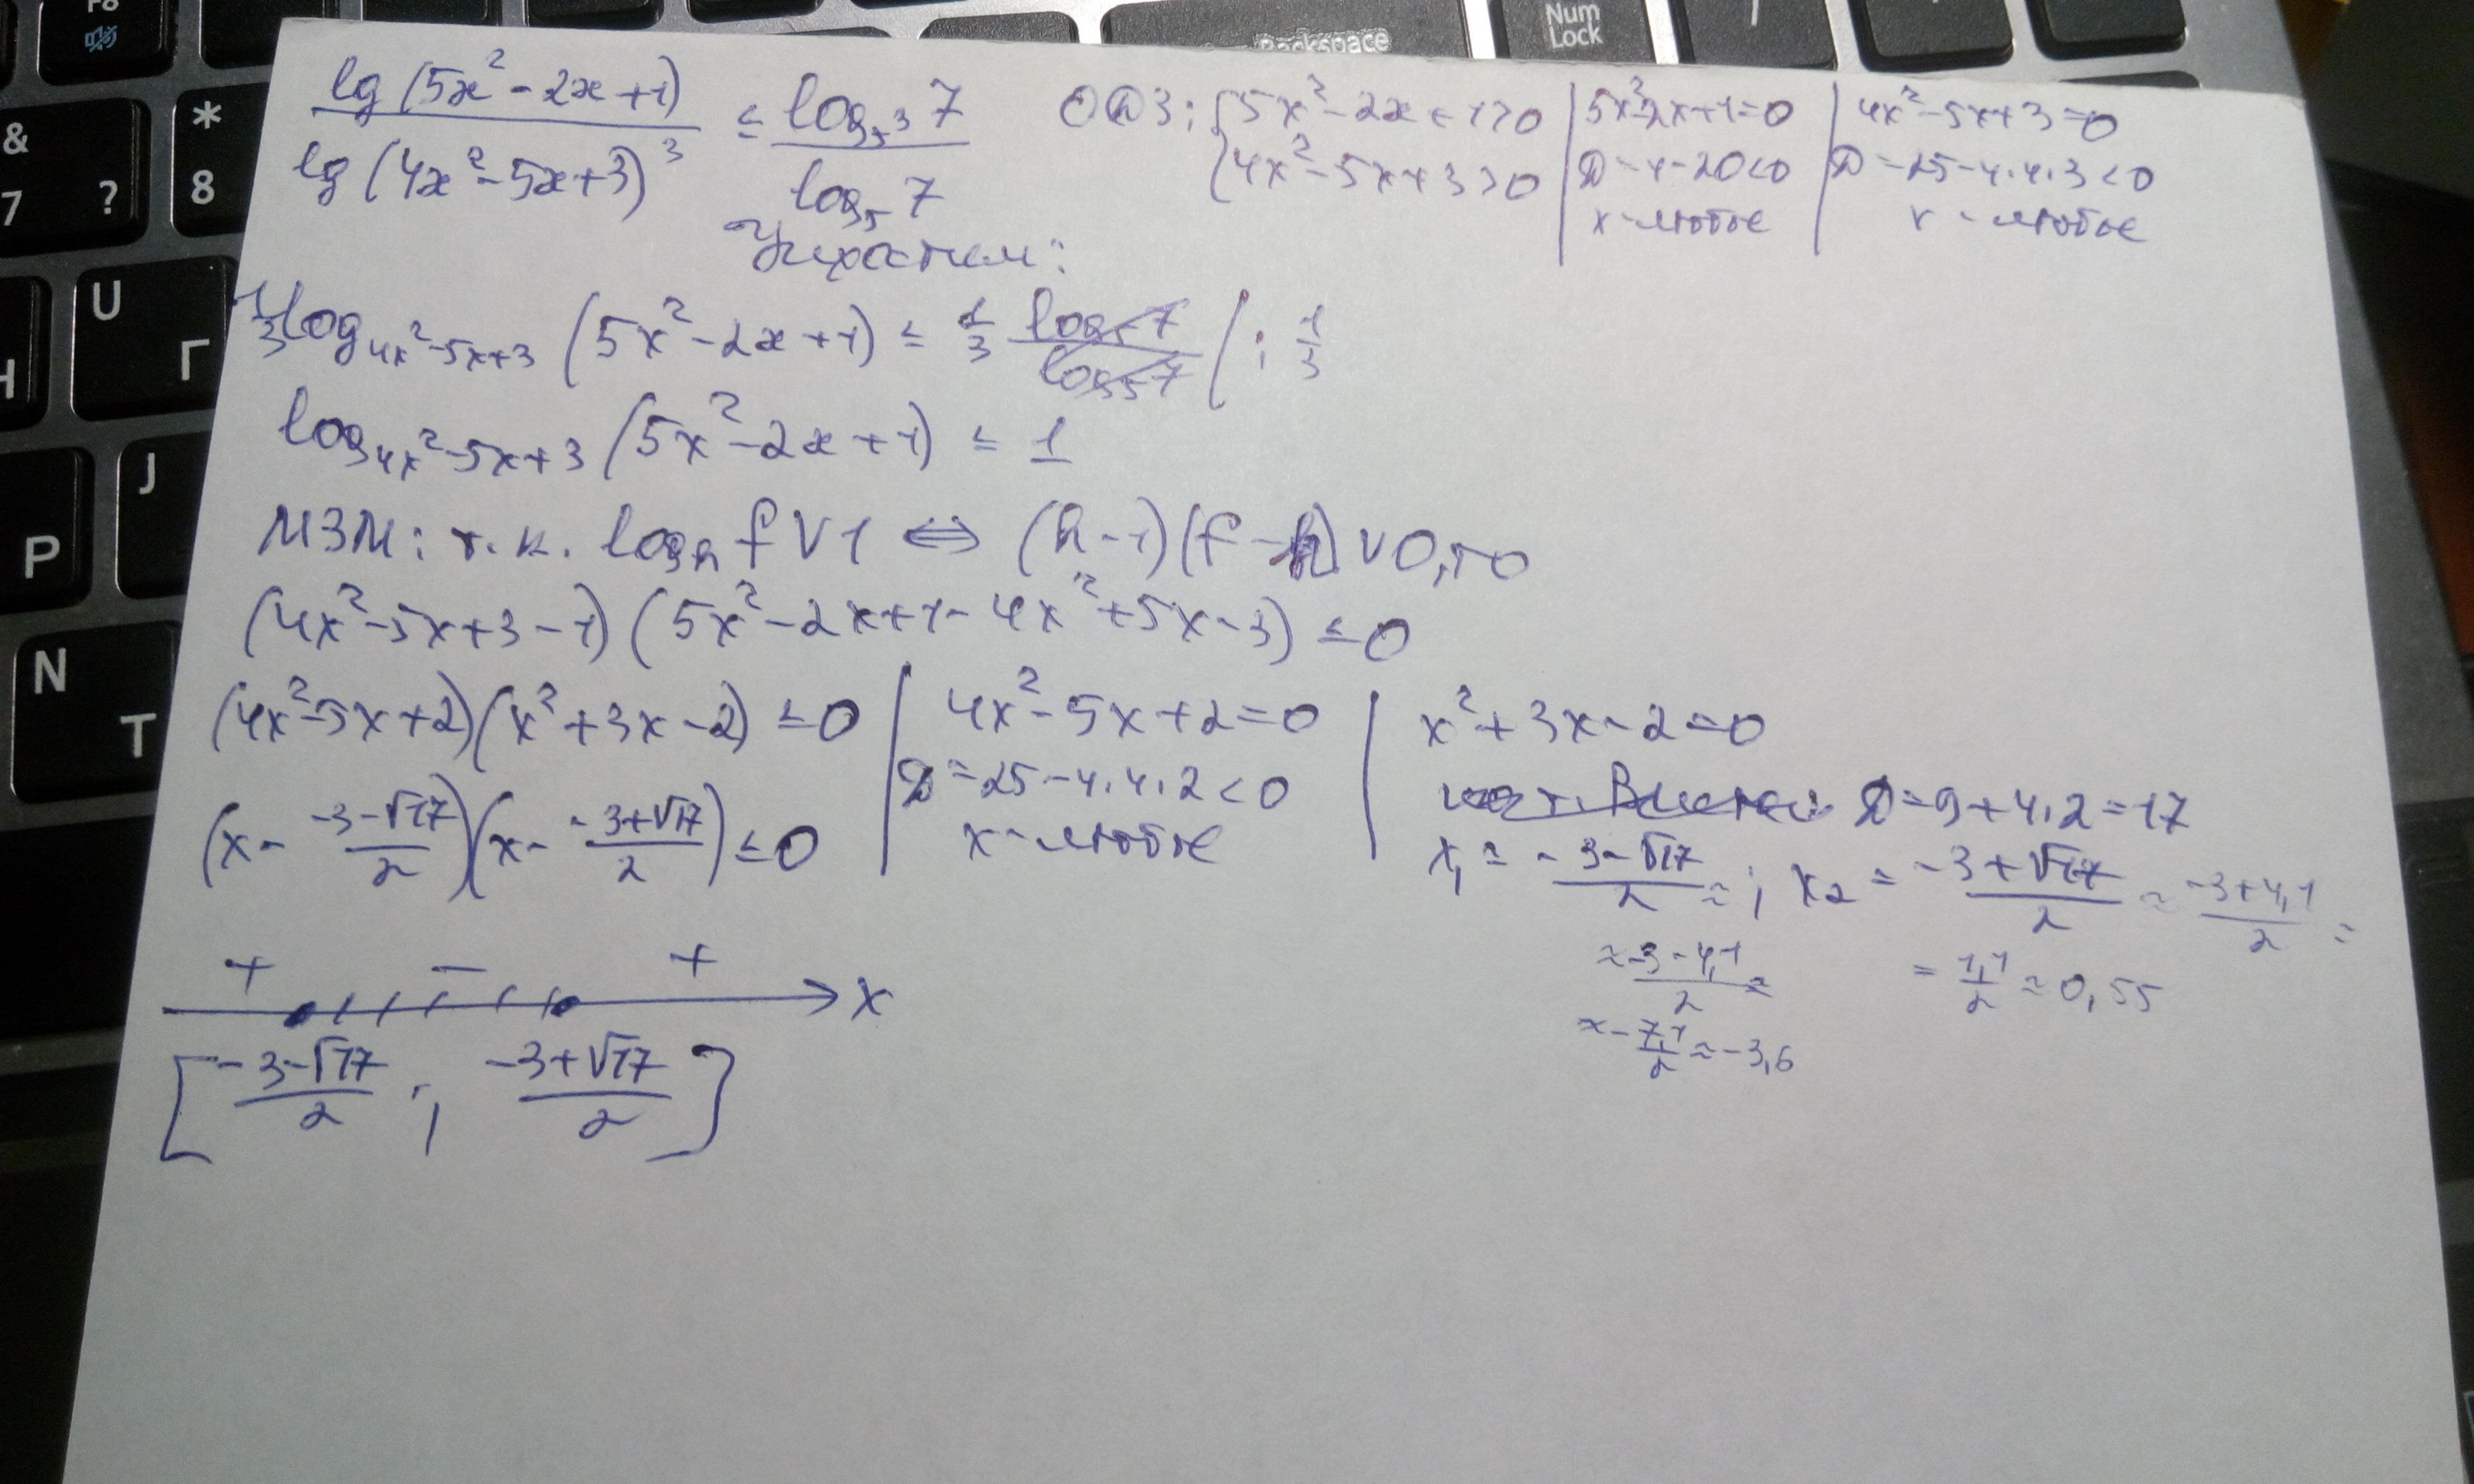 F8
Backspace
Num Lock
/
&
7 ?
*
8
U
Г
J
P
N
T
lg(5x²-2x+1) / lg(4x²-5x+3)³ ≤ log₅₃ 7 / log₅ 7
ОДЗ: { 5x²-2x+1>0
4x²-5x+3>0
5x²-2x+1=0
D=4-20<0
x-любое
4x²-5x+3=0
D=25-4·4·3<0
x-любое
Упростим:
1/3 log_{4x²-5x+3} (5x²-2x+1) ≤ 1/3 log₅7 / log₅7 | : 1/3
log_{4x²-5x+3} (5x²-2x+1) ≤ 1
МЗМ: т.к. log_h f ∨ 1 ⇔ (h-1)(f-h) ∨ 0, то
(4x²-5x+3-1)(5x²-2x+1-4x²+5x-3) ≤ 0
(4x²-5x+2)(x²+3x-2) ≤ 0
4x²-5x+2=0
D=25-4·4·2<0
x-любое
x²+3x-2=0
D=9+4·2=17
x₁ = (-3-√17)/2 ≈ ; x₂ = (-3+√17)/2 ≈ (-3+4,1)/2 =
≈ (-3-4,1)/2 =
= 1,1/2 ≈ 0,55
≈ -7,1/2 ≈ -3,6
(x - (-3-√17)/2)(x - (-3+√17)/2) ≤ 0
+ - + x
[(-3-√17)/2 ; (-3+√17)/2]